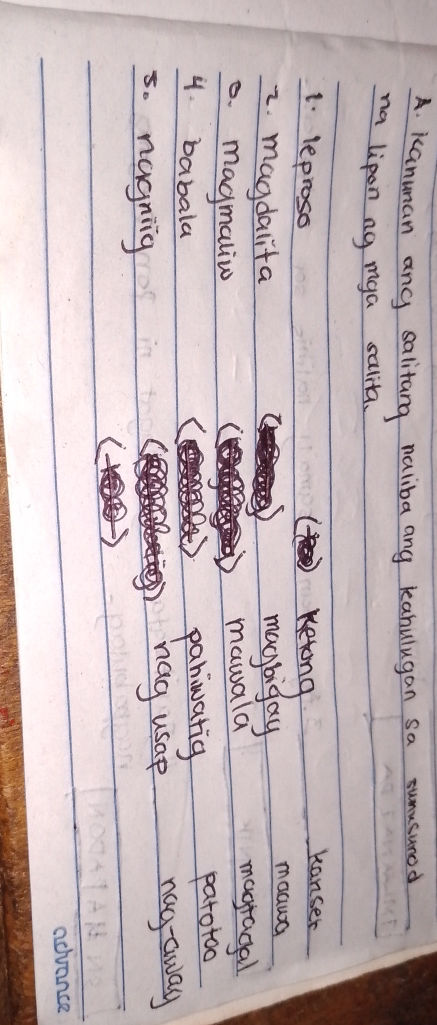 A. Kanunan ang salitang naliba ang kahulugan sa sumusunod
na lipon ng mga salita.
1. leproso ketong kanser
2. magdalita magbigay maawa
3. magmaliw mawala magtagal
4. babala pahiwatig patotoo
5. nagniig nag usap nag-away
advance